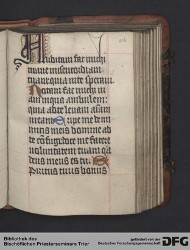 Auditam fac michi
mane misericordiam
tuam quia in te speraui
Notam fac michi ui
am in qua ambulem:
quia ad te leuaui am
mam Eripe me de in
imicis meis domine ad
te confugi doce me facere
uoluntatem tuam quia
deus meus es tu:
Spiritus tuus bonus
Bibliothek des
Bischöflichen Priesterseminars Trier
gefördert von der
Deutschen Forschungsgemeinschaft
DFG